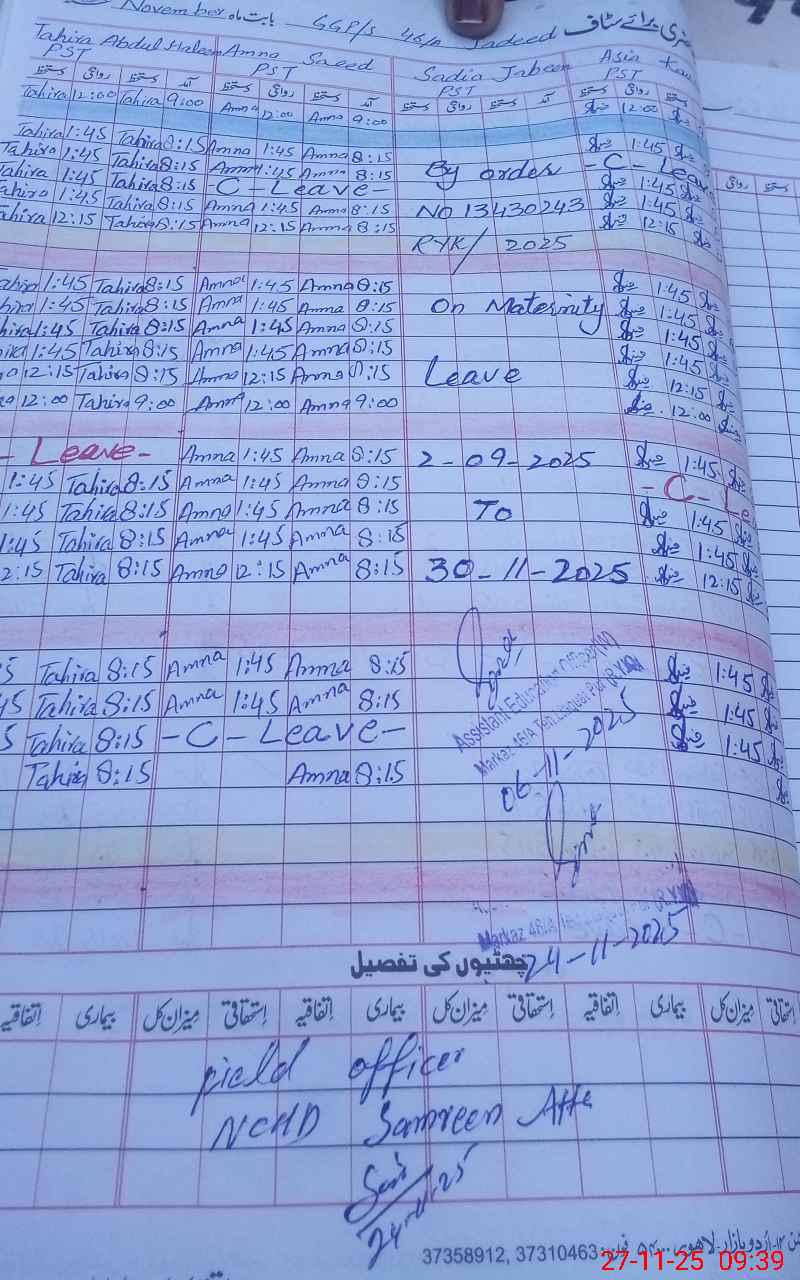 November بابت ماہ GGP/S 46/A Jadeed حاضری برائے سٹاف
Tahira Abdul Haleem Amna Saeed Sadia Jabeen Asia
PST PST PST PST
دستخط روانگی دستخط آمد دستخط روانگی دستخط آمد دستخط روانگی دستخط آمد دستخط روانگی دستخط
Tahira 12:00 Tahira 9:00 Amna 12:00 Amna 9:00 12:00
Tahira 1:45 Tahira 8:15 Amna 1:45 Amna 8:15 1:45
Tahira 1:45 Tahira 8:15 Amna 1:45 Amna 8:15 By order -C- Leave
Tahira 1:45 Tahira 8:15 -C-Leave- 1:45
Tahira 1:45 Tahira 8:15 Amna 1:45 Amna 8:15 No 13430243 1:45
Tahira 12:15 Tahira 8:15 Amna 12:15 Amna 8:15 12:15
RYK/ 2025
Tahira 1:45 Tahira 8:15 Amna 1:45 Amna 8:15 1:45
hira 1:45 Tahira 8:15 Amna 1:45 Amna 8:15 On Maternity 1:45
hira 1:45 Tahira 8:15 Amna 1:45 Amna 8:15 1:45
ira 1:45 Tahira 8:15 Amna 1:45 Amna 8:15 1:45
a 12:15 Tahira 8:15 Amna 12:15 Amna 8:15 Leave 12:15
a 12:00 Tahira 9:00 Amna 12:00 Amna 9:00 12:00
- Leave - Amna 1:45 Amna 8:15 2-09-2025 1:45
1:45 Tahira 8:15 Amna 1:45 Amna 8:15 -C- Le
1:45 Tahira 8:15 Amna 1:45 Amna 8:15 To 1:45
1:45 Tahira 8:15 Amna 1:45 Amna 8:15 1:45
2:15 Tahira 8:15 Amna 12:15 Amna 8:15 30-11-2025 12:15
5 Tahira 8:15 Amna 1:45 Amna 8:15 1:45
45 Tahira 8:15 Amna 1:45 Amna 8:15 1:45
5 Tahira 8:15 -C-Leave- 1:45
Tahira 8:15 Amna 8:15
Assistant Education Officer (W)
Markaz 46/A Teh. Liaquat Pur (R.Y.K)
06-11-2025
Markaz 46/A
24-11-2025
چھٹیوں کی تفصیل
اتفاقیہ بیماری میزان کل استحقاقی اتفاقیہ بیماری میزان کل استحقاقی اتفاقیہ بیماری میزان کل استحقاقی
field officer
NCHD Samreen
24-11-25
اردو بازار لاہور فون 37358912, 37310463
27-11-25 09:39